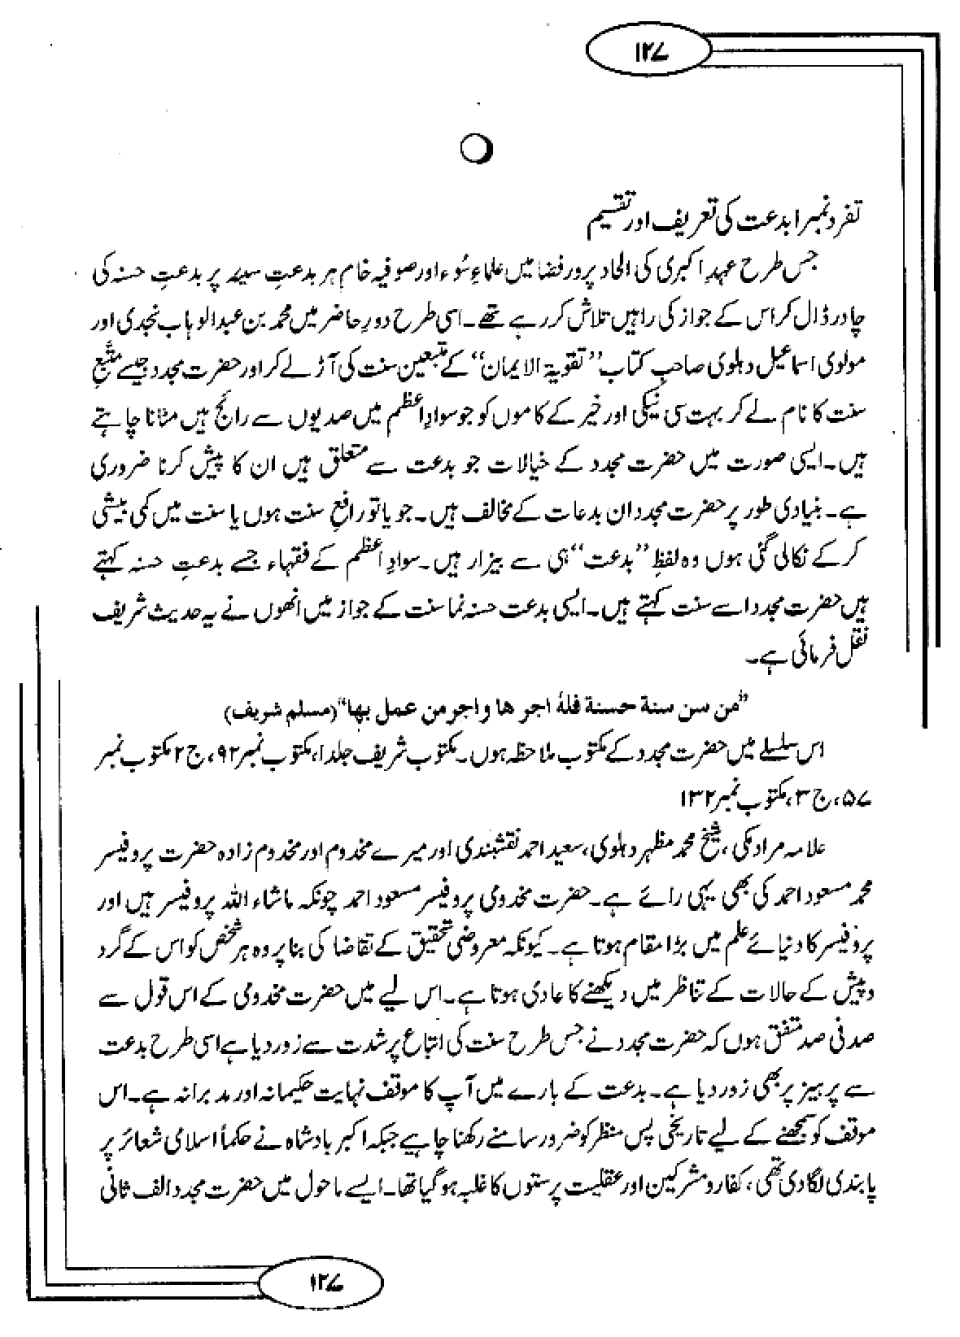 ۱۲۷
تفرد نمبر ۱ بدعت کی تعریف اور تقسیم
جس طرح عہدِ اکبری کی الحاد پرور فضا میں علماءِ سُوء اور صوفیہ خام ہر بدعتِ سیئہ پر بدعتِ حسنہ کی
چادر ڈال کر اس کے جواز کی راہیں تلاش کر رہے تھے۔ اسی طرح دورِ حاضر میں محمد بن عبدالوہاب نجدی اور
مولوی اسماعیل دہلوی صاحبِ کتاب ’’تقویۃ الایمان‘‘ کے متبعین سنت کی آڑ لے کر اور حضرت مجدد جیسے متبعِ
سنت کا نام لے کر بہت سی نیکی اور خیر کے کاموں کو جو سوادِ اعظم میں صدیوں سے رائج ہیں مٹانا چاہتے
ہیں۔ ایسی صورت میں حضرت مجدد کے خیالات جو بدعت سے متعلق ہیں ان کا پیش کرنا ضروری
ہے۔ بنیادی طور پر حضرت مجدد ان بدعات کے مخالف ہیں۔ جو یا تو رافعِ سنت ہوں یا سنت میں کمی بیشی
کر کے نکالی گئی ہوں وہ لفظِ ’’بدعت‘‘ ہی سے بیزار ہیں۔ سوادِ اعظم کے فقہاء جسے بدعتِ حسنہ کہتے
ہیں حضرت مجدد اسے سنت کہتے ہیں۔ ایسی بدعت حسنہ نما سنت کے جواز میں انھوں نے یہ حدیث شریف
نقل فرمائی ہے۔
”من سن سنة حسنة فلهٗ اجر ها و اجر من عمل بها“ (مسلم شریف)
اس سلسلے میں حضرت مجدد کے مکتوب ملاحظہ ہوں۔ مکتوب شریف جلد ۱، مکتوب نمبر ۹۲، ج ۲ مکتوب نمبر
۵۷، ج ۳، مکتوب نمبر ۱۳۲
علامہ مراد مکی، شیخ محمد مظہر دہلوی، سعید احمد نقشبندی اور میرے مخدوم اور مخدوم زادہ حضرت پروفیسر
محمد مسعود احمد کی بھی یہی رائے ہے۔ حضرت مخدومی پروفیسر مسعود احمد چونکہ ماشاء اللہ پروفیسر ہیں اور
پروفیسر کا دنیائے علم میں بڑا مقام ہوتا ہے۔ کیونکہ معروضی تحقیق کے تقاضا کی بنا پر وہ ہر شخص کو اس کے گرد
و پیش کے حالات کے تناظر میں دیکھنے کا عادی ہوتا ہے۔ اس لیے میں حضرت مخدومی کے اس قول سے
صد فی صد متفق ہوں کہ حضرت مجدد نے جس طرح سنت کی اتباع پر شدت سے زور دیا ہے اسی طرح بدعت
سے پرہیز پر بھی زور دیا ہے۔ بدعت کے بارے میں آپ کا موقف نہایت حکیمانہ اور مدبرانہ ہے۔ اس
موقف کو سمجھنے کے لیے تاریخی پس منظر کو ضرور سامنے رکھنا چاہیے جبکہ اکبر بادشاہ نے حکماً اسلامی شعائر پر
پابندی لگا دی تھی، کفار و مشرکین اور عقلیت پرستوں کا غلبہ ہو گیا تھا۔ ایسے ماحول میں حضرت مجدد الف ثانی
۱۲۷